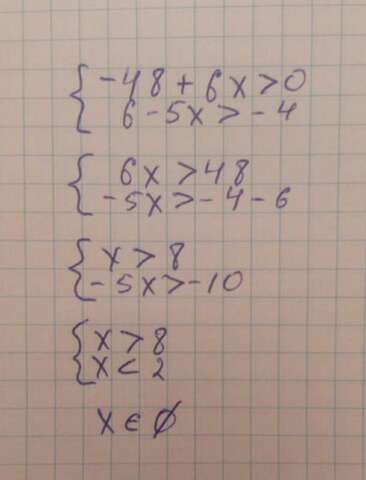 { -48 + 6x > 0
6 - 5x > -4
{ 6x > 48
-5x > -4 - 6
{ x > 8
-5x > -10
{ x > 8
x < 2
x ∈ ∅